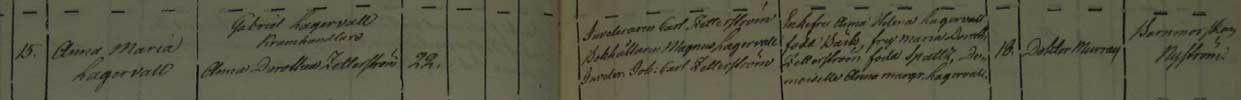 15. Anna Maria
Lagervall
Gabriel Lagervall
Kramhandlare
Anna Dorothea Zetterström
22.
Juveleraren Carl Zetterström
Bokhållaren Magnus Lagervall
Juveler. Joh: Carl Zetterström
Enkefru Anna Helena Lagervall
född Bäck, fru Maria Doroth.
Zetterström född Spaltz, De-
moiselle Anna Margr. Lagervall.
18.
Doktor Murray
Barnmorskan
Nyström.